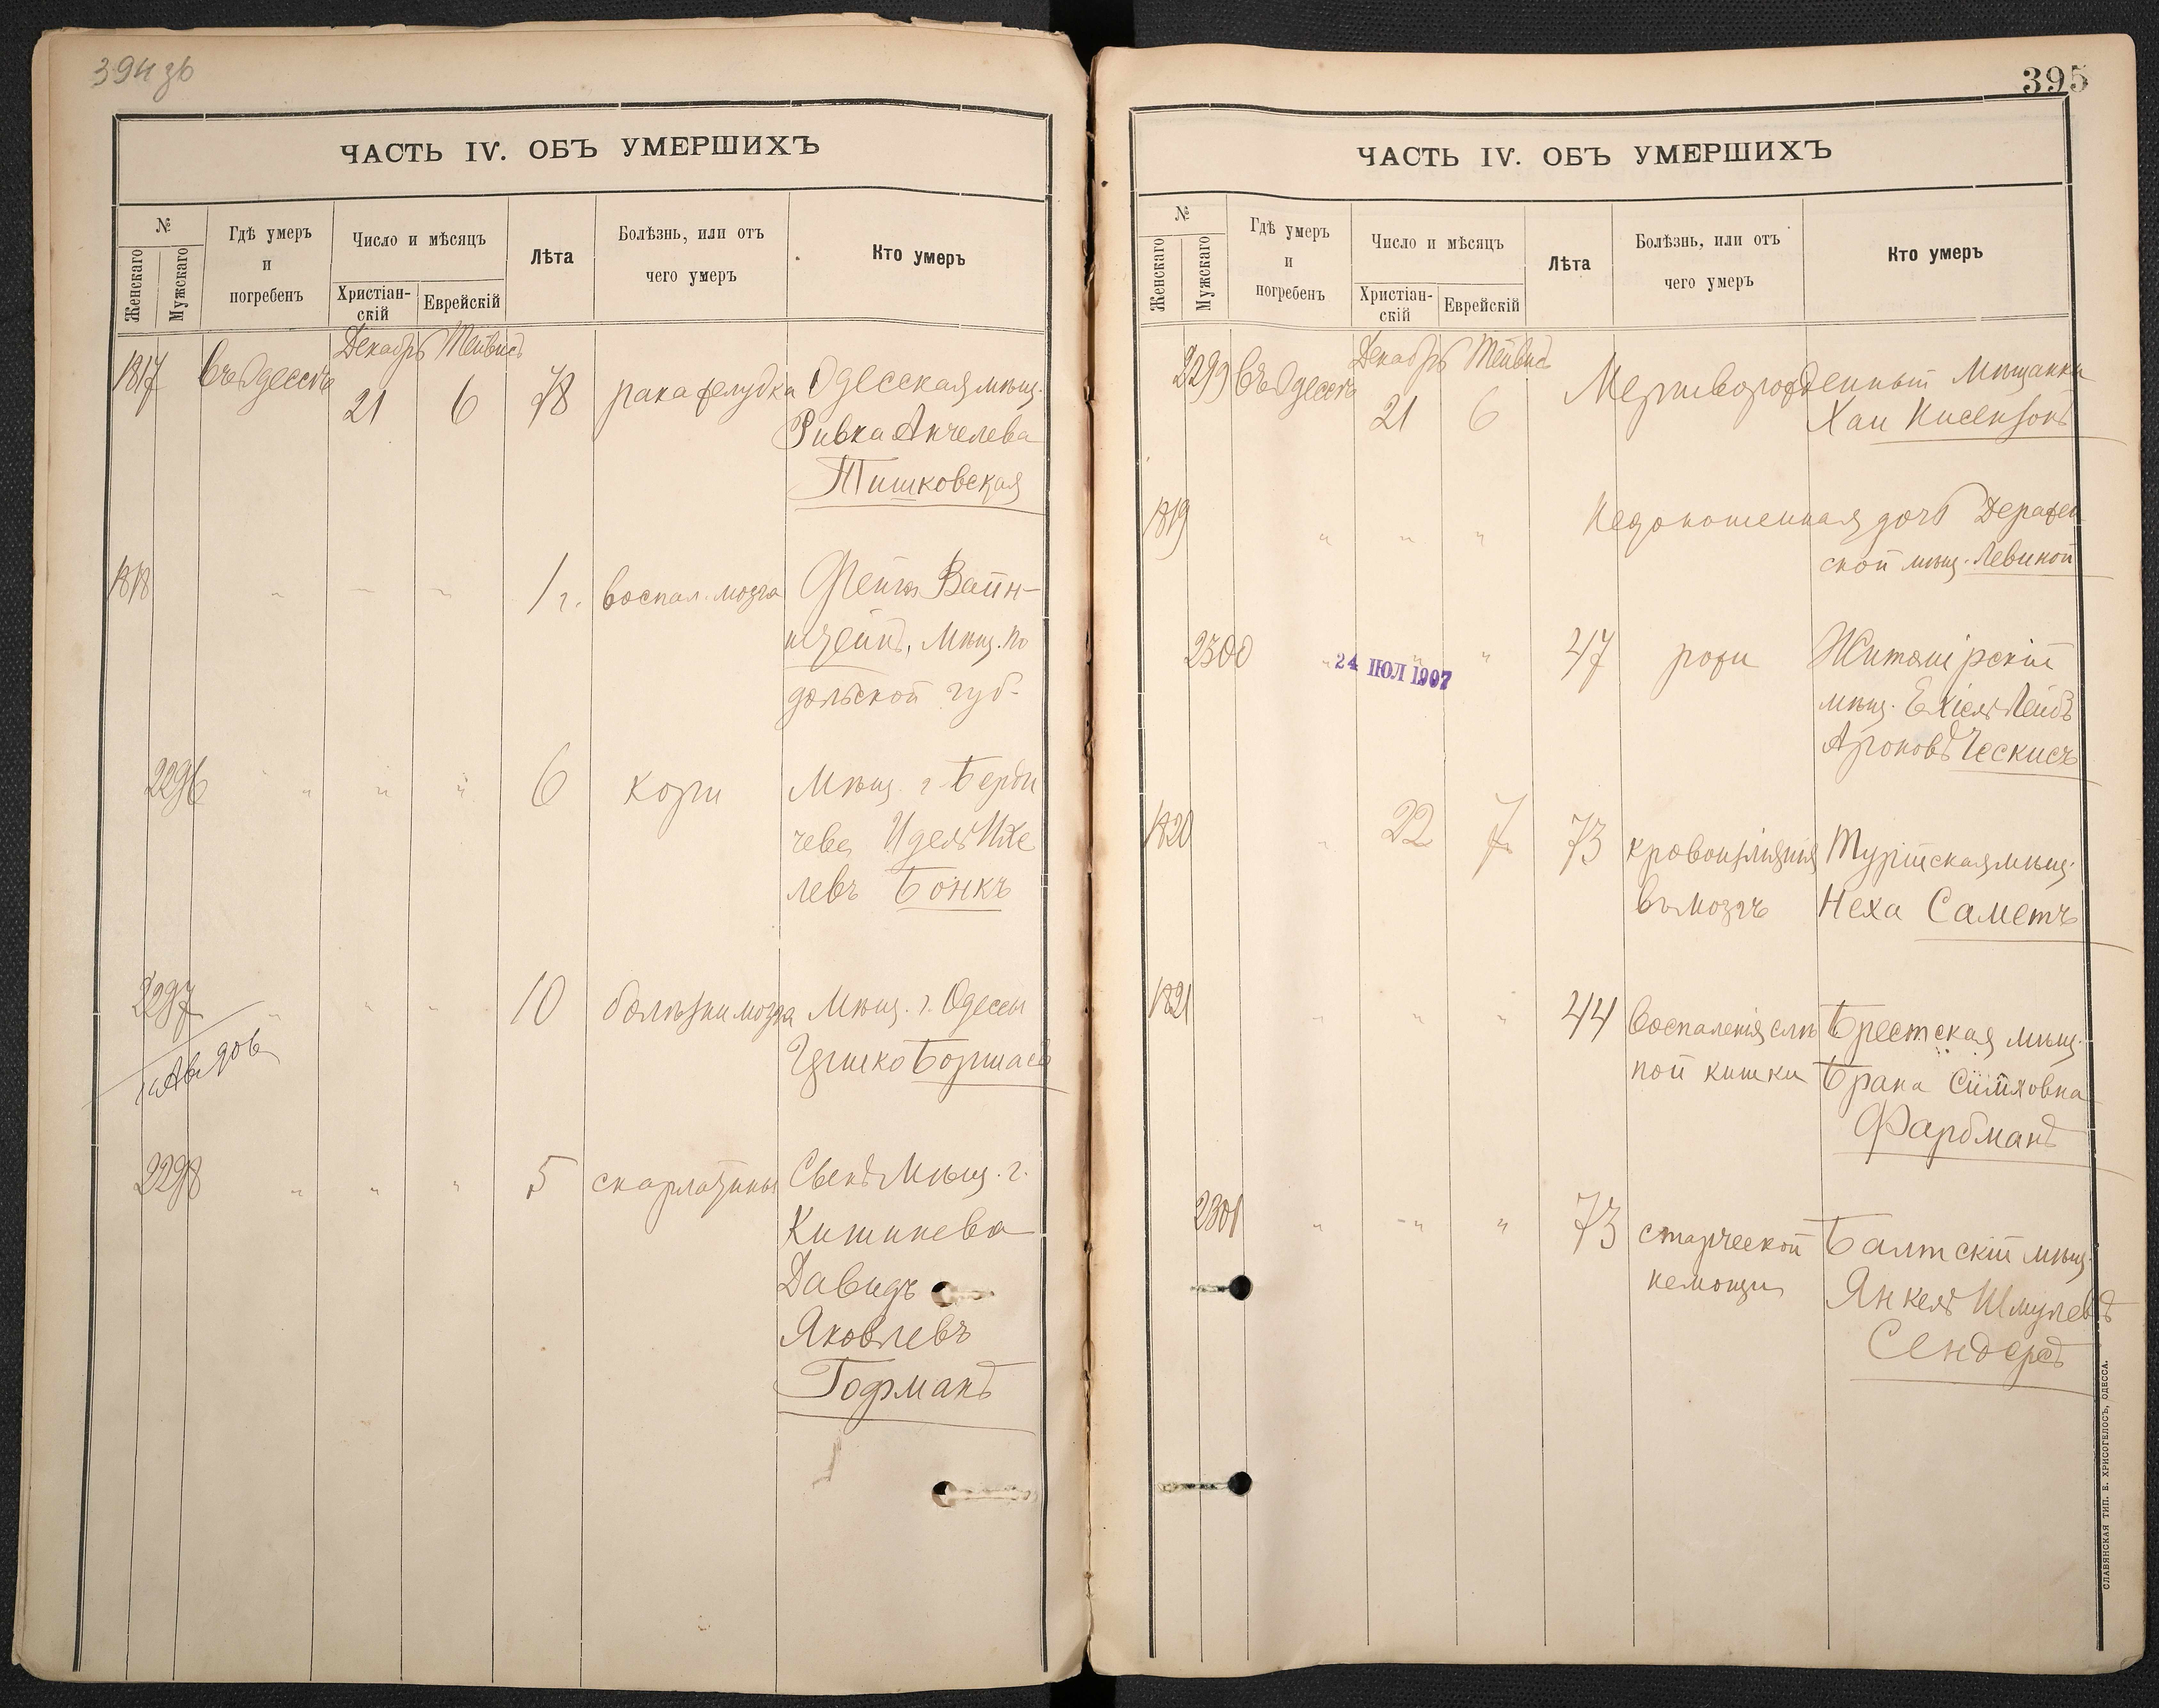 394 зв
ЧАСТЬ IV. ОБЪ УМЕРШИХЪ
№
Женскаго
Мужскаго
Гдѣ умеръ
и
погребенъ
Число и мѣсяцъ
Христіан-
скій
Еврейскій
Лѣта
Болѣзнь, или отъ
чего умеръ
Кто умеръ
Декабрь Тейвисъ
1817 Въ Одессѣ 21 6 78 рака желудка Одесская мѣщ.
Ривка Анчелева
Тишковская
1818 " " " 1 г. воспал. мозга Фейга Вайн-
штейнъ, Мѣщ. По
дольской губ-
2296 " " " 6 кори Мѣщ. г. Берди
чева Идель Ихе
левъ Бонкъ
2297 " " " 10 болѣзни мозга Мѣщ. г. Одессы
Борщасъ
2298 " " " 5 скарлатины Сынъ Мѣщ. г.
Кишинева
Давидъ
Яковлевъ
Гофманъ
395
ЧАСТЬ IV. ОБЪ УМЕРШИХЪ
№
Женскаго
Мужскаго
Гдѣ умеръ
и
погребенъ
Число и мѣсяцъ
Христіан-
скій
Еврейскій
Лѣта
Болѣзнь, или отъ
чего умеръ
Кто умеръ
Декабрь Тейвисъ
2299 Въ Одессѣ 21 6 Мертворожденный Мѣщанки
Хаи Нисензонъ
1819 " " " Недоношенная дочь Деражн
ской мѣщ. Левиной
2300 " " " 47 рожи Житомірскій
мѣщ. Ехіель Лейбъ
Ароновъ Ческисъ
24 ІЮЛ 1907
1820 " 22 7 73 кровоизліянія Турійская мѣщ.
въ мозгъ Неха Саметъ
1821 " " " 44 Воспаленія слѣ Брестская мѣщ.
пой кишки Брана Симховна
Фарбманъ
2301 " " " 73 старческой Балтскій мѣщ.
немощи Янкель Шмулевъ
Сендеръ
СЛАВЯНСКАЯ ТИП. Е. ХРИСОГЕЛОСЪ, ОДЕССА.